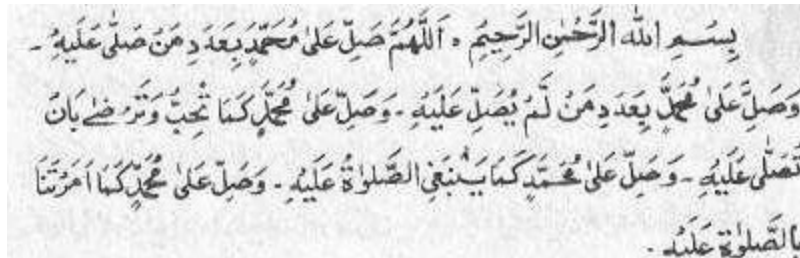 بِسْمِ اللهِ الرَّحْمٰنِ الرَّحِيْمِ ہ اَللّٰهُمَّ صَلِّ عَلٰى مُحَمَّدٍ بِعَدَدِ مَنْ صَلّٰى عَلَيْهِ ۔
وَصَلِّ عَلٰى مُحَمَّدٍ بِعَدَدِ مَنْ لَّمْ يُصَلِّ عَلَيْهِ ۔ وَصَلِّ عَلٰى مُحَمَّدٍ كَمَا تُحِبُّ وَتَرْضٰے بِاَنْ
تُصَلّٰى عَلَيْهِ ۔ وَصَلِّ عَلٰى مُحَمَّدٍ كَمَا يَنْۢبَغِى الصَّلٰوةُ عَلَيْهِ ۔ وَصَلِّ عَلٰى مُحَمَّدٍ كَمَا اَمَرْتَنَا
بِالصَّلٰوةِ عَلَيْهِ ۔